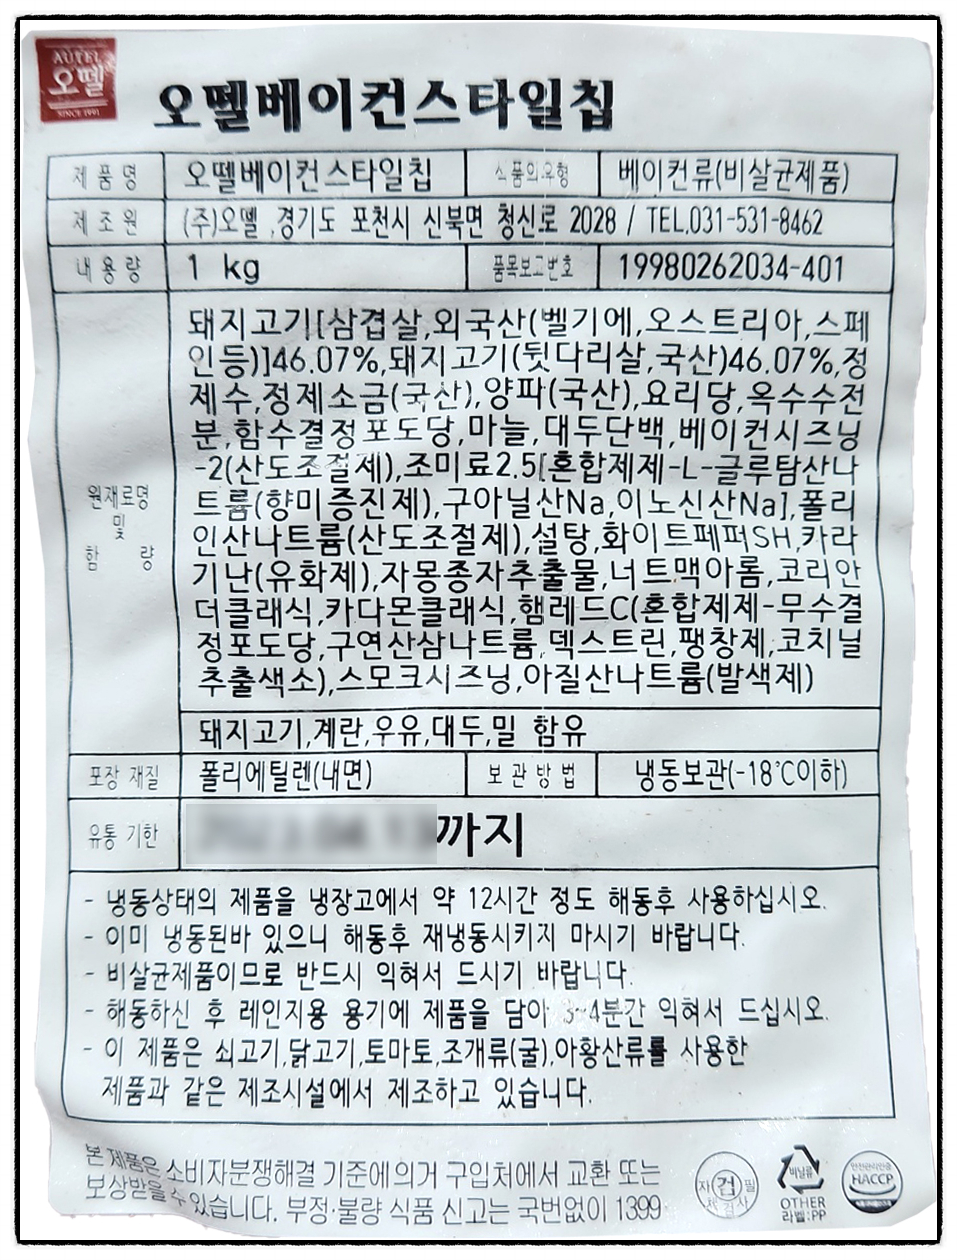 AUTEL
오뗄
SINCE 1991
오뗄베이컨스타일칩
제품명 오뗄베이컨스타일칩 식품의유형 베이컨류(비살균제품)
제조원 (주)오뗄 ,경기도 포천시 신북면 청신로 2028 / TEL.031-531-8462
내용량 1 kg 품목보고번호 19980262034-401
원재료명
및
함 량
돼지고기[삼겹살,외국산(벨기에,오스트리아,스페
인등)]46.07%,돼지고기(뒷다리살,국산)46.07%,정
제수,정제소금(국산),양파(국산),요리당,옥수수전
분,함수결정포도당,마늘,대두단백,베이컨시즈닝
-2(산도조절제),조미료2.5[혼합제제-L-글루탐산나
트륨(향미증진제),구아닐산Na,이노신산Na],폴리
인산나트륨(산도조절제),설탕,화이트페퍼SH,카라
기난(유화제),자몽종자추출물,너트맥아롬,코리안
더클래식,카다몬클래식,햄레드C(혼합제제-무수결
정포도당,구연산삼나트륨,덱스트린,팽창제,코치닐
추출색소),스모크시즈닝,아질산나트륨(발색제)
돼지고기,계란,우유,대두,밀 함유
포장 재질 폴리에틸렌(내면) 보관방법 냉동보관(-18℃이하)
유통 기한 까지
- 냉동상태의 제품을 냉장고에서 약 12시간 정도 해동후 사용하십시오.
- 이미 냉동된바 있으니 해동후 재냉동시키지 마시기 바랍니다.
- 비살균제품이므로 반드시 익혀서 드시기 바랍니다.
- 해동하신 후 레인지용 용기에 제품을 담아 3~4분간 익혀서 드십시오.
- 이 제품은 쇠고기,닭고기,토마토,조개류(굴),아황산류를 사용한
제품과 같은 제조시설에서 제조하고 있습니다.
본 제품은 소비자분쟁해결 기준에의거 구입처에서 교환 또는
보상받을 수 있습니다. 부정·불량 식품 신고는 국번없이 1399
자 검 필
비닐류
OTHER
라벨:PP
안전관리인증
HACCP